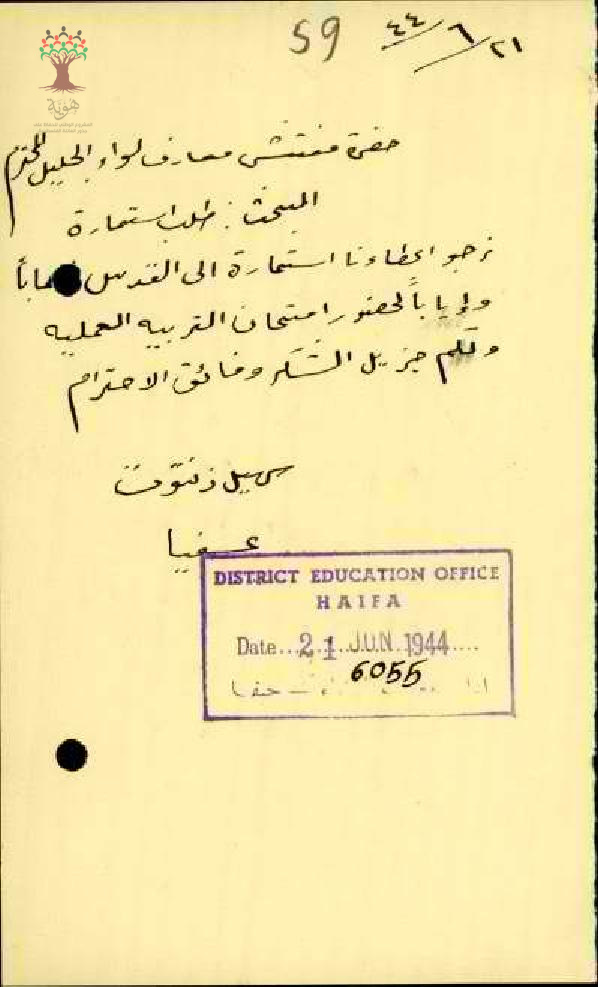 59
٢١/٦/٤٤
هوية
حضرة مفتش معارف لواء الجليل المحترم
المبحث : طلب استمارة
نرجو اعطاءنا استمارة الى القدس ذهاباً
واياباً لحضور امتحان التربيه العمليه
ولكم جزيل الشكر وفائق الاحترام
سهيل زنتوت
عسفيا
DISTRICT EDUCATION OFFICE
HAIFA
Date...21..JUN.1944....
6055
حيفا